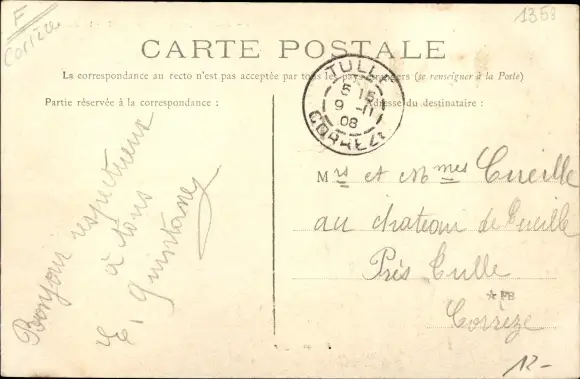 F
Corrèze
1358
CARTE POSTALE
La correspondance au recto n'est pas acceptée par tous les pays étrangers (se renseigner à la Poste)
Partie réservée à la correspondance :
Adresse du destinataire :
TULLE
5 15
9 -11
08
CORREZE
Bonjour respectueux
à tous
E. Quintane
Mrs et Mmes Cueille
au chateau de Cueille
Près Tulle
★FB
Corrèze
12-